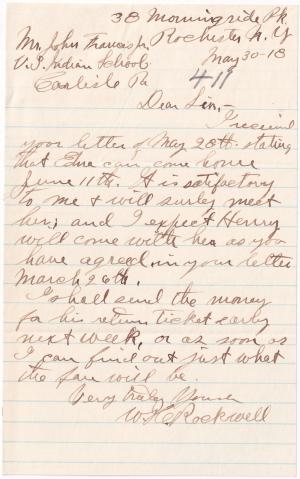 38 Morningside Pk.
Rochester N. Y
Mr John Francis Jr.
U.S. Indian School
May 30-18
Carlisle Pa
411
Dear Sir,-
I received
your letter of May 28th. stating
that Edna can come home
June 11th. It is satisfactory
to me & will surley meet
her, and I expect Henry
will come with her as you
have agreed in your letter
March 26th.
I shall send the money
for his return ticket early
next week, or as soon as
I can find out just what
the fare will be.
Very truly Yours
W. Rockwell